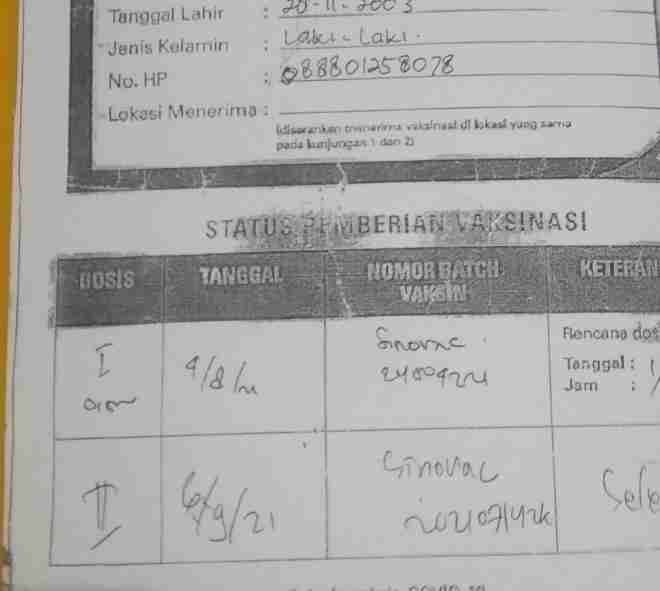 Tanggal Lahir : 20-11-2003
Jenis Kelamin : Laki-Laki.
No. HP : 088801258078
Lokasi Menerima :
(disarankan menerima vaksinasi di lokasi yang sama
pada kunjungan 1 dan 2)
STATUS PEMBERIAN VAKSINASI
DOSIS TANGGAL NOMOR BATCH VAKSIN KETERAN
I 9/8/21 Sinovac Rencana dos
Tanggal :
Jam :
II 6/9/21 Sinovac Sele